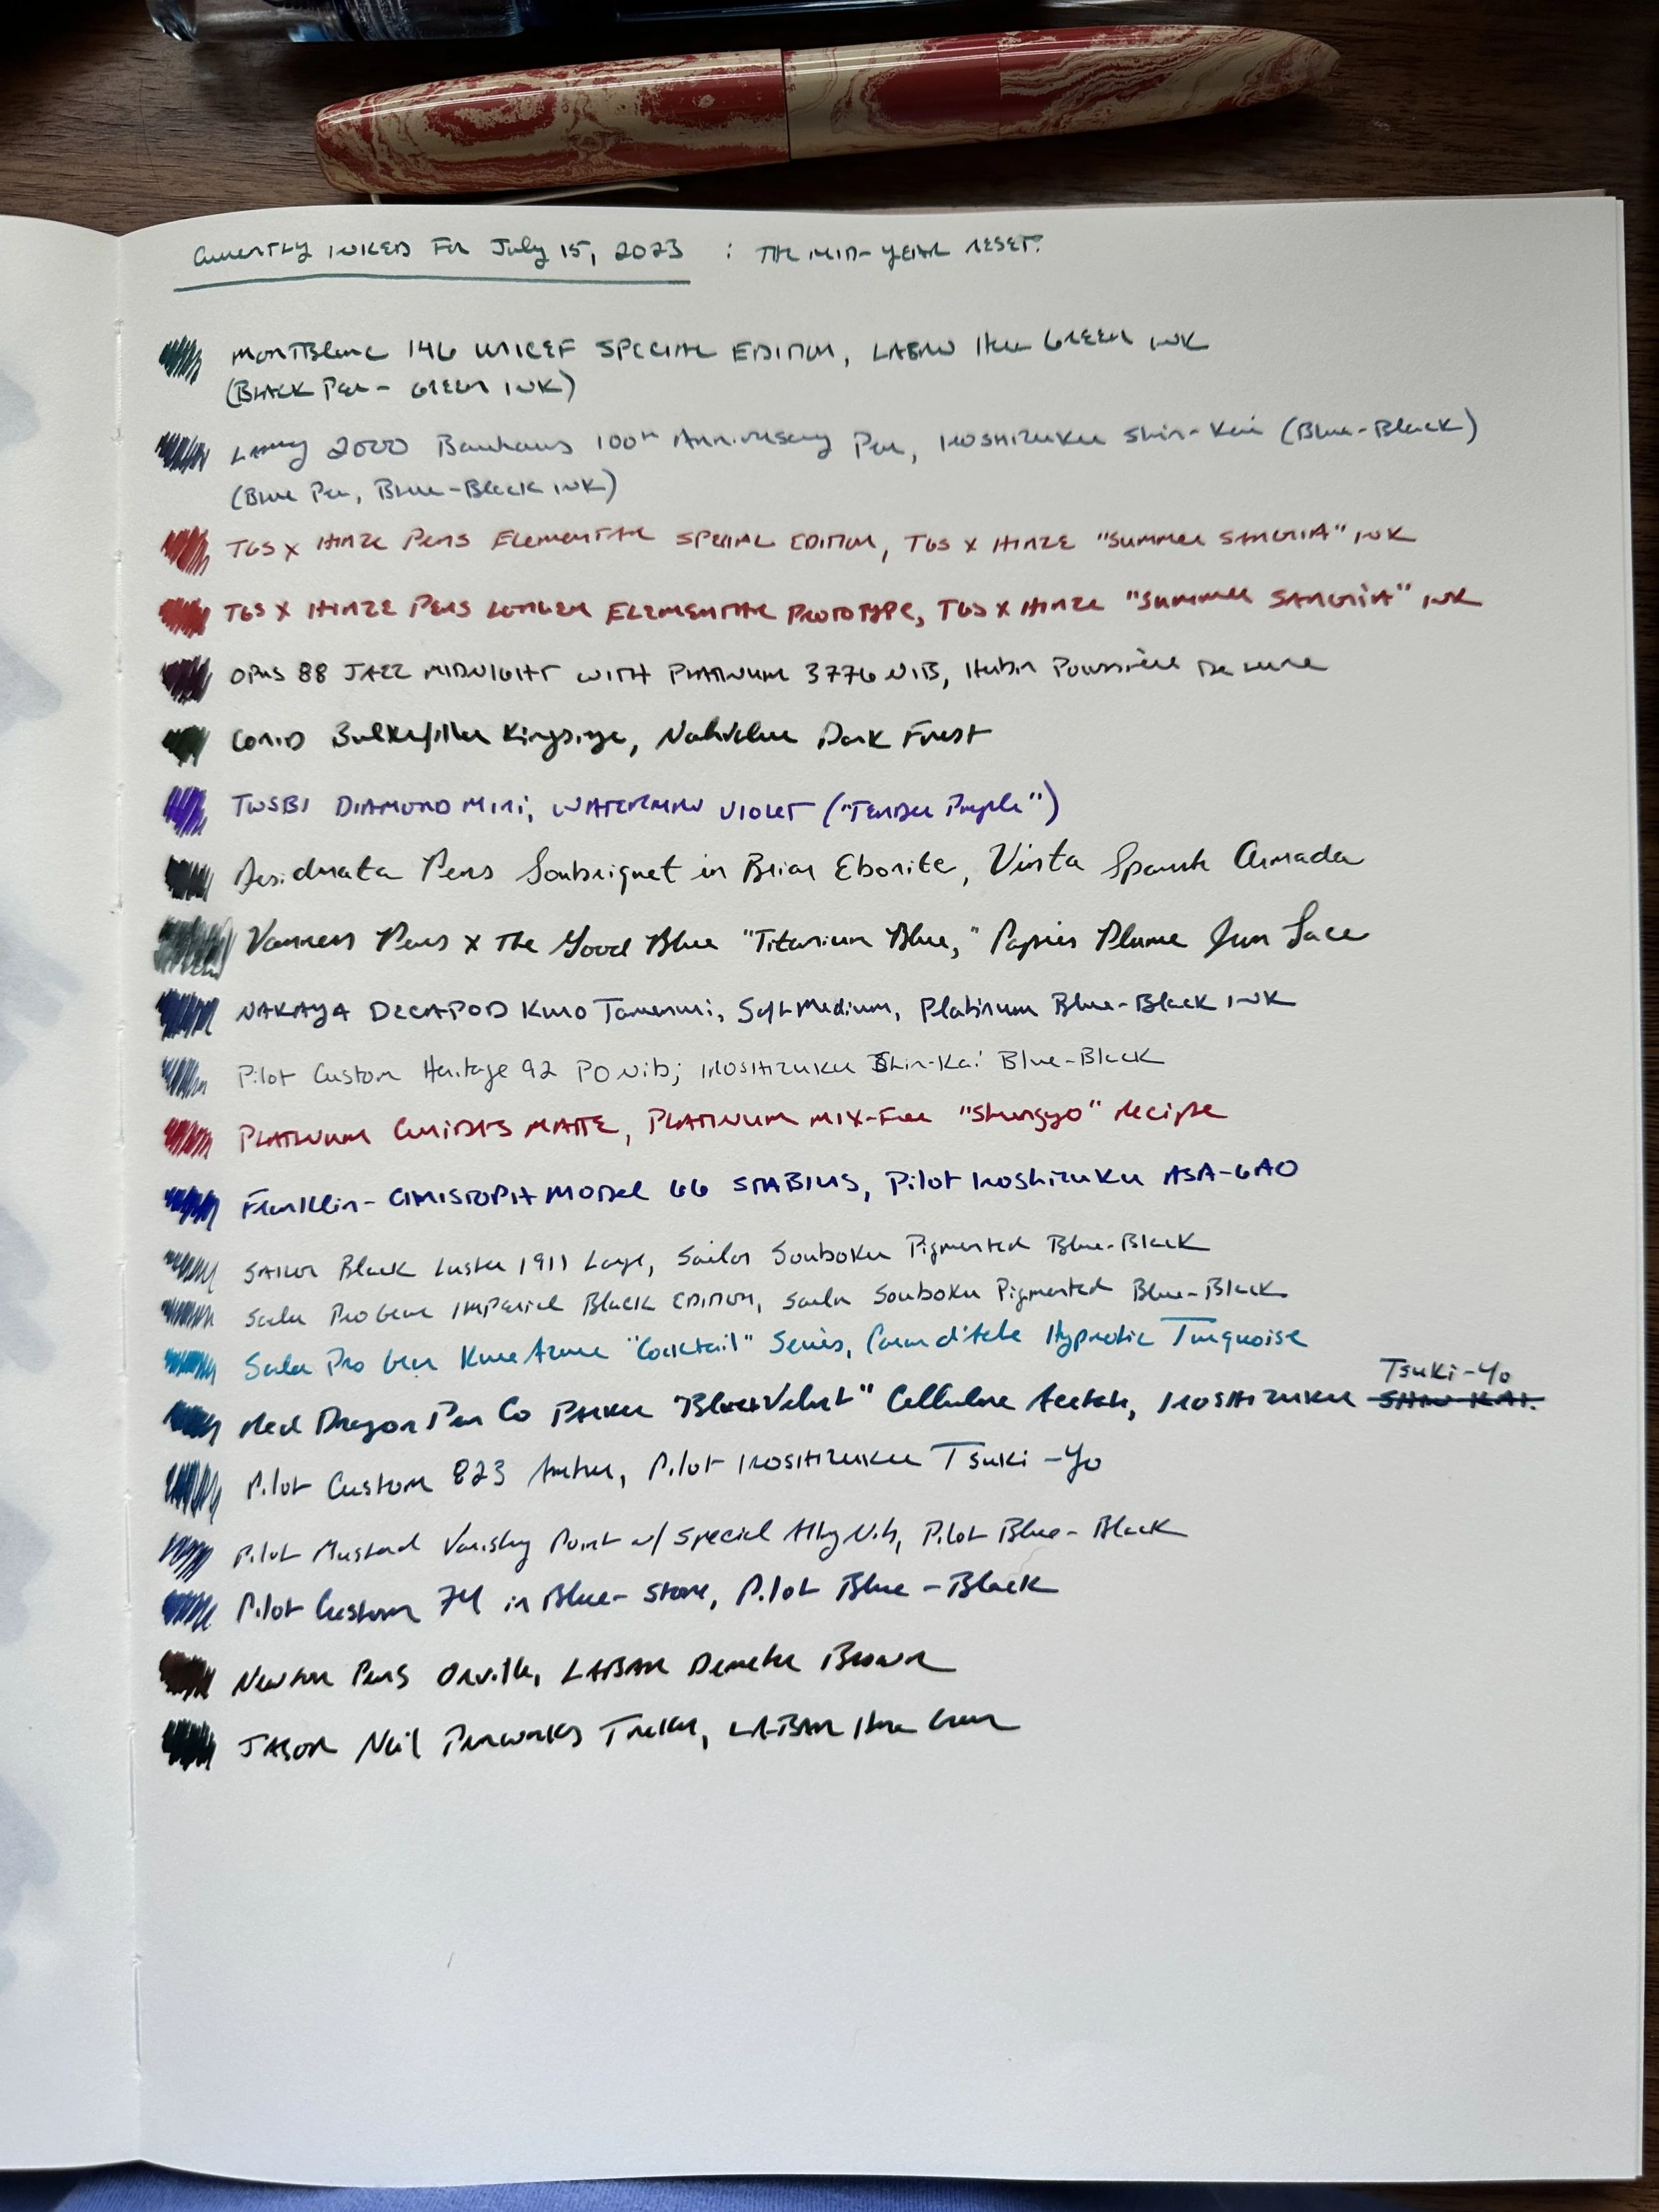 Currently Inked for July 15, 2023 : The Mid-Year Reset.
MontBlanc 146 UNICEF Special Edition, LABAN Green Ink
(Black Pen - Green Ink)
Lamy 2000 Bauhaus 100th Anniversary Pen, Iroshizuku Shin-Kai (Blue-Black)
(Blue Pen, Blue-Black Ink)
TGS x Hinze Pens Elemental Special Edition, TGS x Hinze "Summer Sangria" Ink
TGS x Hinze Pens Longer Elemental Prototype, TGS x Hinze "Summer Sangria" Ink
Opus 88 Jazz Midnight with Platinum 3776 Nib, Herbin Poussière De Lune
Conid Bulkfiller Kingsize, Nahvalur Dark Forest
TWSBI Diamond Mini, Waterman Violet ("Tender Purple")
Desiderata Pens Soubriquet in Briar Ebonite, Vinta Spanish Armada
Vanness Pens x The Good Blue "Titanium Blue," Papier Plume Iron Lace
Nakaya Decapod Kuro Tamenuri, Soft Medium, Platinum Blue-Black Ink
Pilot Custom Heritage 92 PO Nib; Iroshizuku Shin-Kai Blue-Black
Platinum Curidas Matte, Platinum Mix-Free "Shungyo" Recipe
Franklin-Christoph Model 66 Stabilis, Pilot Iroshizuku Asa-Gao
Sailor Black Luster 1911 Large, Sailor Souboku Pigmented Blue-Black
Sailor Pro Gear Imperial Black Edition, Sailor Souboku Pigmented Blue-Black
Sailor Pro Gear Kure Azur "Cocktail" Series, Caran d'Ache Hypnotic Turquoise
Tsuki-Yo
Red Dragon Pen Co Parker "Blue Velvet" Cellulose Acetate, Iroshizuku Shin Kai.
Pilot Custom 823 Amber, Pilot Iroshizuku Tsuki-Yo
Pilot Mustard Vanishing Point w/ Special Alloy Nib, Pilot Blue-Black
Pilot Custom 74 in Blue-Stone, Pilot Blue-Black
Newton Pens Orville, LABAN Demeter Brown
Jason Neil Penworks LABAN Green